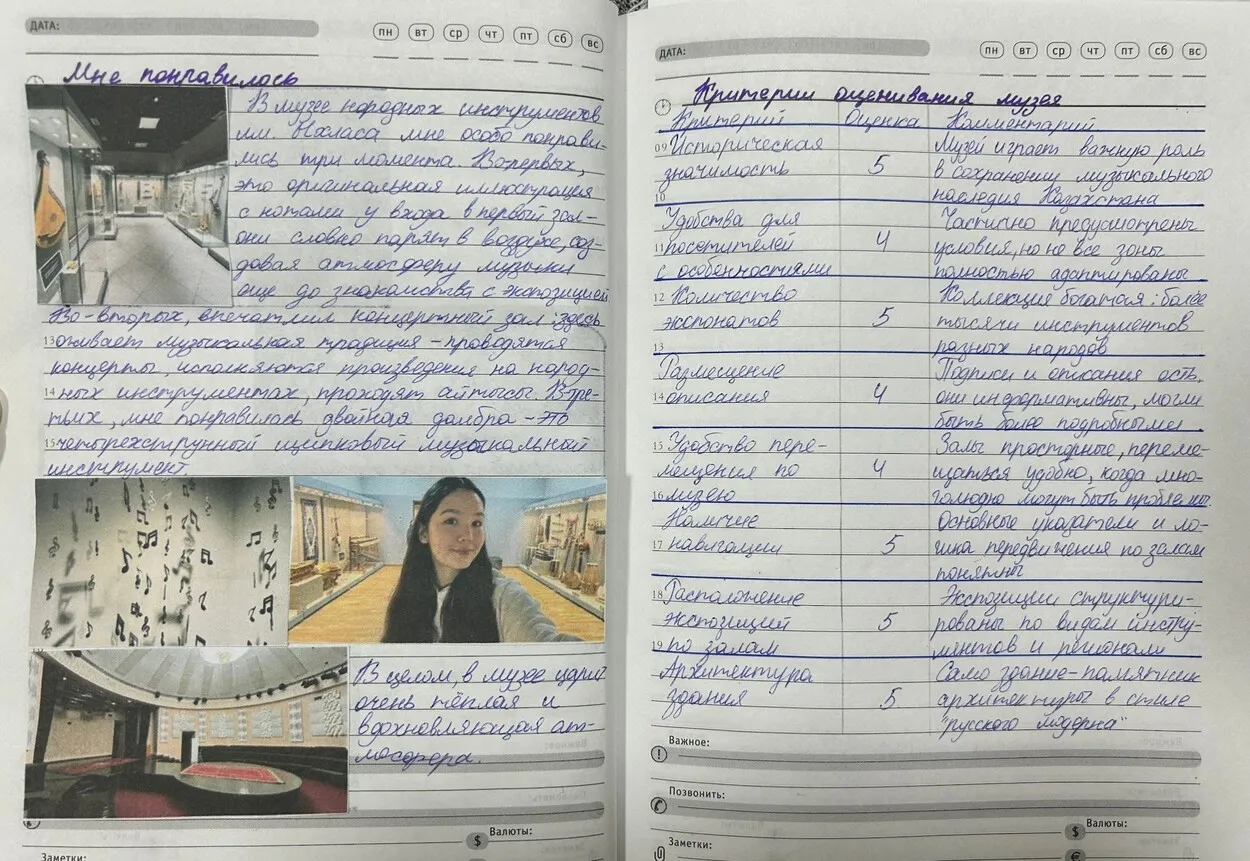 ДАТА:
пн вт ср чт пт сб вс
Мне понравилось
В музее народных инструментов
им. Ыхласа мне особо понрави-
лись три момента. Во-первых,
это оригинальная иллюстрация
с нотами у входа в первый зал-
они словно парят в воздухе, соз-
давая атмосферу музыки
еще до знакомства с экспозицией
Во-вторых, впечатлил концертный зал: здесь
13 оживает музыкальная традиция - проводятся
концерты, исполняются произведения на народ-
14 ных инструментах, проходят айтысы. В-тре-
тьих, мне понравилась двойная домбра - это
15 четырехструнный щипковый музыкальный
инструмент.
В целом, в музее царит
очень тёплая и
вдохновляющая ат-
мосфера.
Валюты:
$
Заметки:
ДАТА:
пн вт ср чт пт сб вс
Критерии оценивания музея
Критерий Оценка Комментарий
09 Историческая Музей играет важную роль
значимость 5 в сохранении музыкального
10 наследия Казахстана
Удобства для Частично предусмотрены
11 посетителей 4 условия, но не все зоны
с особенностями полностью адаптированы
12 Количество Коллекция богатая: более
экспонатов 5 тысячи инструментов
13 разных народов
Размещение Подписи и описания есть,
14 описания 4 они информативны, могли
быть более подробными
15 Удобство пере- Залы просторные, переме-
мещения по 4 щаться удобно, когда мно-
16 музею голюдно могут быть проблемы.
Наличие Основные указатели и ло-
17 навигации 5 гика передвижения по залам
понятны
18 Расположение Экспозиции структури-
экспозиций 5 рованы по видам инстру-
19 по залам ментов и регионам
Архитектура Само здание-памятник
здания 5 архитектуры в стиле
"русского модерна"
Важное:
Позвонить:
Валюты:
$
Заметки:
€